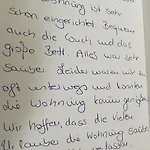 Wohnung ist sehr
schön eingerichtet. Bequem
auch die Couch und das
große Bett. Alles war sehr
sauber. Leider waren wir zu
oft unterwegs und konnten
die Wohnung kaum genießen
Wir hoffen, dass die vielen
die Wohnung